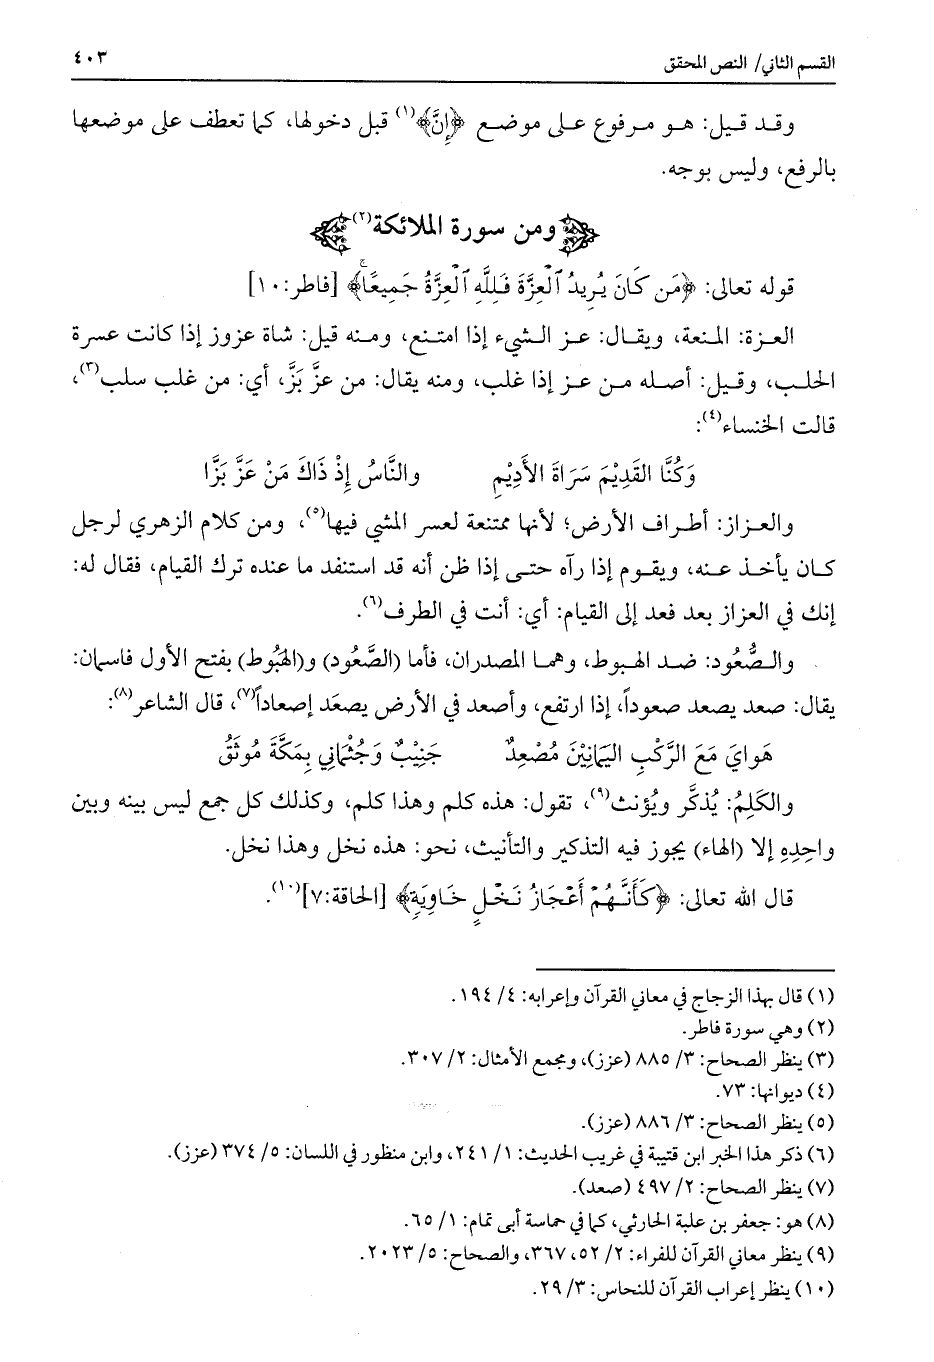 القسم الثاني/ النص المحقق ٤٠٣
وقد قيل: هو مرفوع على موضع ﴿إِنَّ﴾(١) قبل دخولها، كما تعطف على موضعها
بالرفع، وليس بوجه.
ومن سورة الملائكة(٢)
قوله تعالى: ﴿مَن كَانَ يُرِيدُ ٱلْعِزَّةَ فَلِلَّهِ ٱلْعِزَّةُ جَمِيعًا﴾ [فاطر:١٠]
العزة: المنعة، ويقال: عز الشيء إذا امتنع، ومنه قيل: شاة عزوز إذا كانت عسرة
الحلب، وقيل: أصله من عز إذا غلب، ومنه يقال: من عزَّ بَزَّ، أي: من غلب سلب(٣)،
قالت الخنساء(٤):
وَكُنَّا القَدِيْمَ سَرَاةَ الأَدِيْمِ والنَّاسُ إِذْ ذَاكَ مَنْ عَزَّ بَزَّا
والعزاز: أطراف الأرض؛ لأنها ممتنعة لعسر المشي فيها(٥)، ومن كلام الزهري لرجل
كان يأخذ عنه، ويقوم إذا رآه حتى إذا ظن أنه قد استنفد ما عنده ترك القيام، فقال له:
إنك في العزاز بعد فعد إلى القيام: أي: أنت في الطرف(٦).
والصُّعُود: ضد الهبوط، وهما المصدران، فأما (الصَّعُود) و(الهَبُوط) بفتح الأول فاسمان:
يقال: صعد يصعد صعوداً، إذا ارتفع، وأصعد في الأرض يصعَد إصعاداً(٧)، قال الشاعر(٨):
هَوايَ مَعَ الرَّكْبِ اليَمانِيْنَ مُصْعِدٌ جَنِيْبٌ وَجُثْمَانِي بِمَكَّةَ مُوثَقُ
والكَلِمُ: يُذكَّر ويُؤنث(٩)، تقول: هذه كلم وهذا كلم، وكذلك كل جمع ليس بينه وبين
واحِدِهِ إلا (الهاء) يجوز فيه التذكير والتأنيث، نحو: هذه نخل وهذا نخل.
قال الله تعالى: ﴿كَأَنَّهُمْ أَعْجَازُ نَخْلٍ خَاوِيَةٍ﴾ [الحاقة:٧](١٠).
(١) قال بهذا الزجاج في معاني القرآن وإعرابه: ٤/ ١٩٤.
(٢) وهي سورة فاطر.
(٣) ينظر الصحاح: ٣/ ٨٨٥ (عزز)، ومجمع الأمثال: ٢/ ٣٠٧.
(٤) ديوانها: ٧٣.
(٥) ينظر الصحاح: ٣/ ٨٨٦ (عزز).
(٦) ذكر هذا الخبر ابن قتيبة في غريب الحديث: ١/ ٢٤١، وابن منظور في اللسان: ٥/ ٣٧٤ (عزز).
(٧) ينظر الصحاح: ٢/ ٤٩٧ (صعد).
(٨) هو: جعفر بن علبة الحارثي، كما في حماسة أبي تمام: ١/ ٦٥.
(٩) ينظر معاني القرآن للفراء: ٢/ ٥٢، ٣٦٧، والصحاح: ٥/ ٢٠٢٣.
(١٠) ينظر إعراب القرآن للنحاس: ٣/ ٢٩.